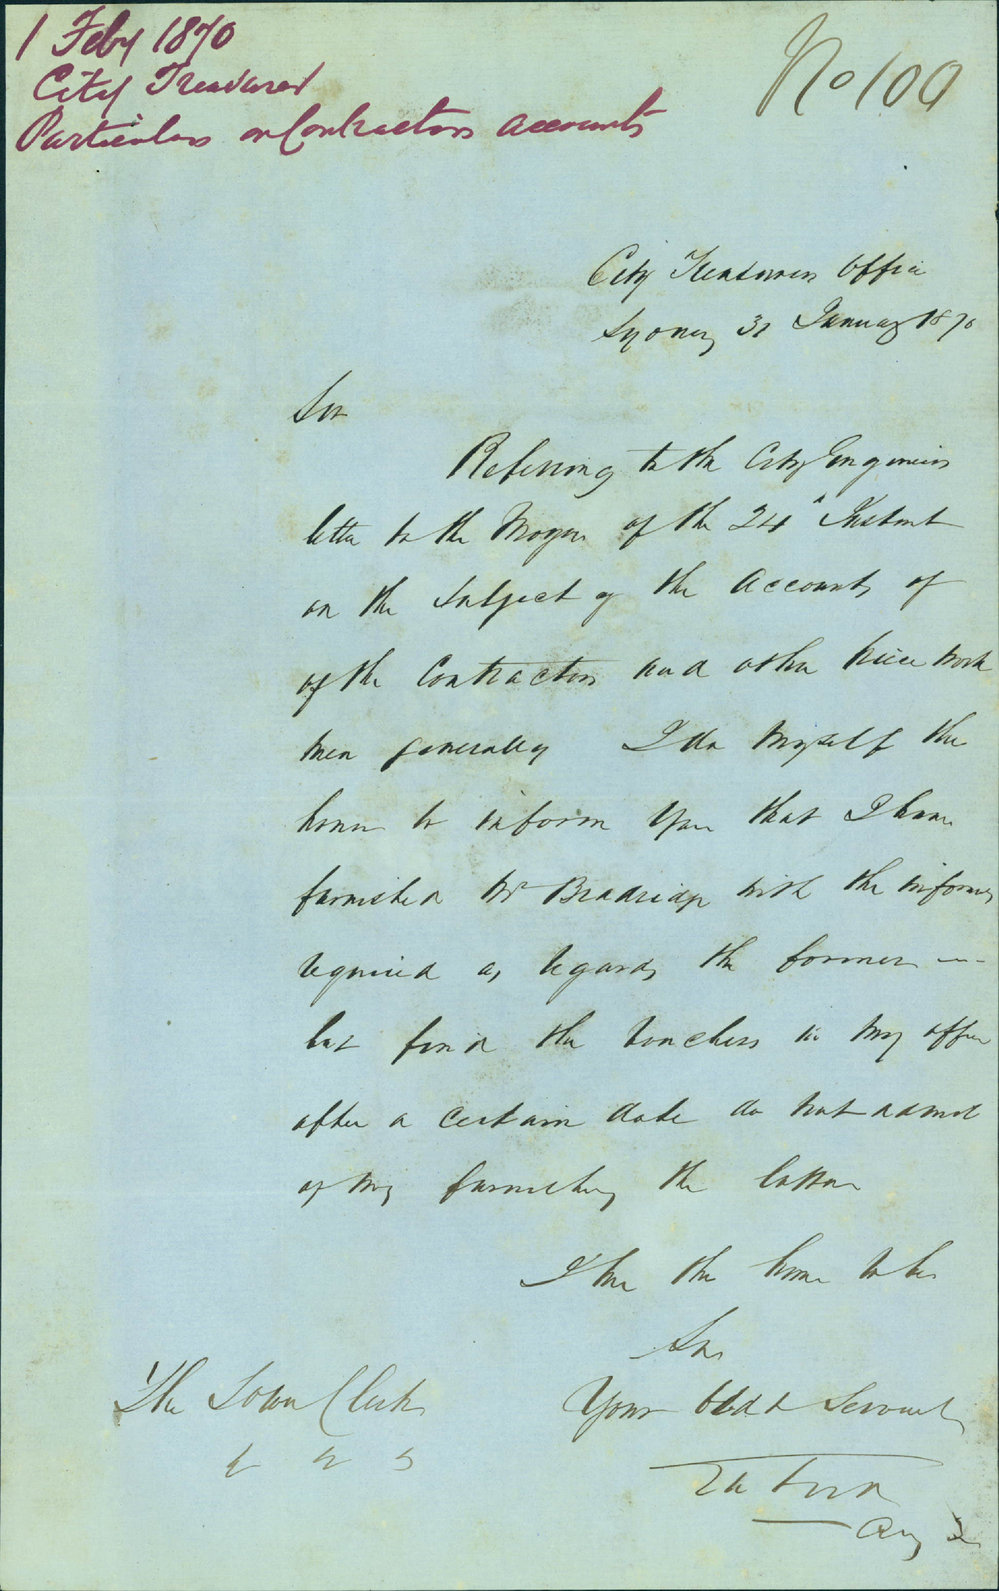 1 Feby 1870
City Treasurer
Particulars on Contractors accounts
No 100
City Treasurers Office
Sydney 31 January 1870
Sir
Referring to the City Engineers
letter to the Mayor of the 24th Instant
on the Subject of the Accounts of
of the Contractors and other piece work
men generally I do myself the
honor to inform you that I have
furnished Mr Bradridge with the
required as regards the former
but find the Vouchers in my office
after a certain date do not admit
of my furnishing the latter
I have the honor to be
Sir
Your Obdt Servant
The Town Clerk